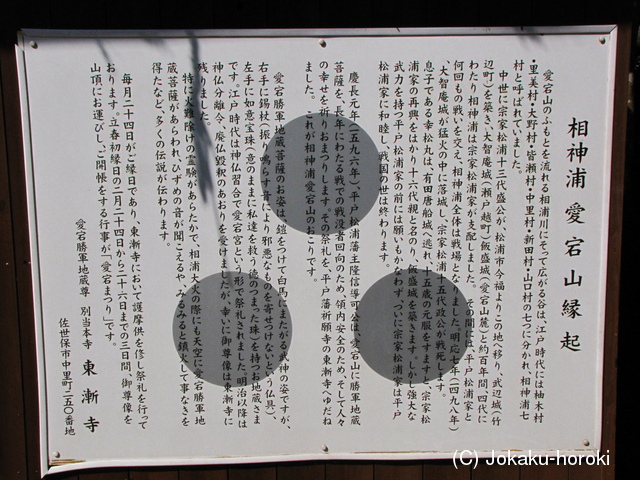 相神浦愛宕山縁起
愛宕山のふもとを流れる相浦川にそって広がる谷は、江戸時代には柚木村
・里美村・大野村・皆瀬村・中里村・新田村・山口村の七つに分かれ、相神浦七
村と呼ばれていました。
中世に宗家松浦十三代盛公が、松浦市今福よりこの地へ移り、武辺城(竹
辺町)を築き、大智庵城(瀬戸越町)、飯盛城(愛宕山麓)と約百年間、四代に
わたり相神浦は宗家松浦家が支配しました。その間には、平戸松浦家と
何回もの戦いを交え、相神浦全体は戦場となりました。明応七年(一四九八年)
、大智庵城が猛火の中に落城し、宗家松浦十五代政公が戦死します。
息子である幸松丸は、有田唐船城へ逃れ、十五歳の元服をすますと、宗家松
浦家の再興をはかり十六代親と名のり、飯盛城を築きます。しかし強大な
武力を持つ平戸松浦家の前には願いもかなわず、ついに宗家松浦家は平戸
松浦家に和睦し、戦国の世は終わります。
慶長元年(一五九六年)、平戸松浦藩主隆信導可公は、愛宕山に勝軍地蔵
菩薩を、長年にわたる戦での戦没者回向のため、領内安全のため、そして人々
の幸せを祈りおまつりします。その祭礼を、平戸藩祈願寺の東漸寺へゆだね
ました。これが相神浦愛宕山のおこりです。
愛宕勝軍地蔵菩薩のお姿は、鎧をつけて白馬にまたがる武神の姿ですが、
右手に錫杖(振り鳴らす音により邪悪なものを寄せつけないという仏具)、
左手に如意宝珠(意のままに私達を救う、徳のつまった珠)を持つお地蔵さま
です。江戸時代は神仏習合で愛宕宮という形で祭礼されました。明治以降は
神仏分離令・廃仏毀釈のあおりを受けましたが、幸いに御尊像は東漸寺に
残りました。
特に火難除けの霊験があらたかで、相浦大火の際にも天空に愛宕勝軍地
蔵菩薩があらわれ、ひずめの音が聞こえるや、みるみると鎮火して事なきを
得たなど、多くの伝説が伝わります。
毎月二十四日がご縁日であり、東漸寺において護摩供を修し祭礼を行って
おります。立春初縁日の二月二十四日から二十六日までの三日間、御尊像を
山頂にお運びし、ご開帳をする行事が「愛宕まつり」です。
愛宕勝軍地蔵尊 別当本寺 東漸寺
佐世保市中里町二五〇番地
(C) Jokaku-horoki